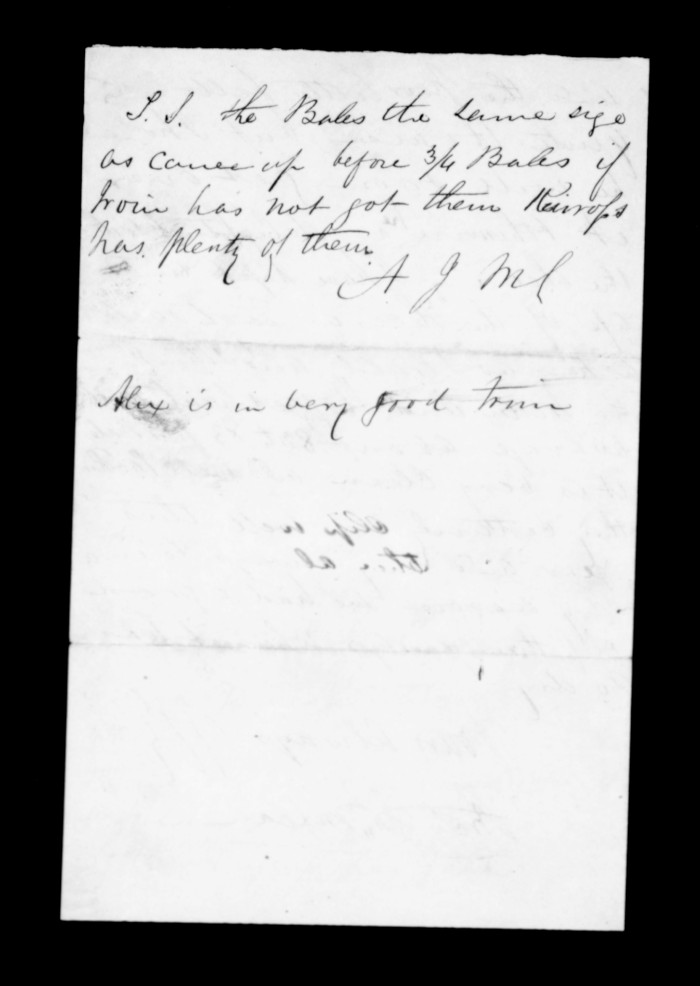 P. S. the Bales the same size
as came up before 3/4 Bales if
Irvin has not got them
has plenty of them
A J McL
Alex is in very good trim